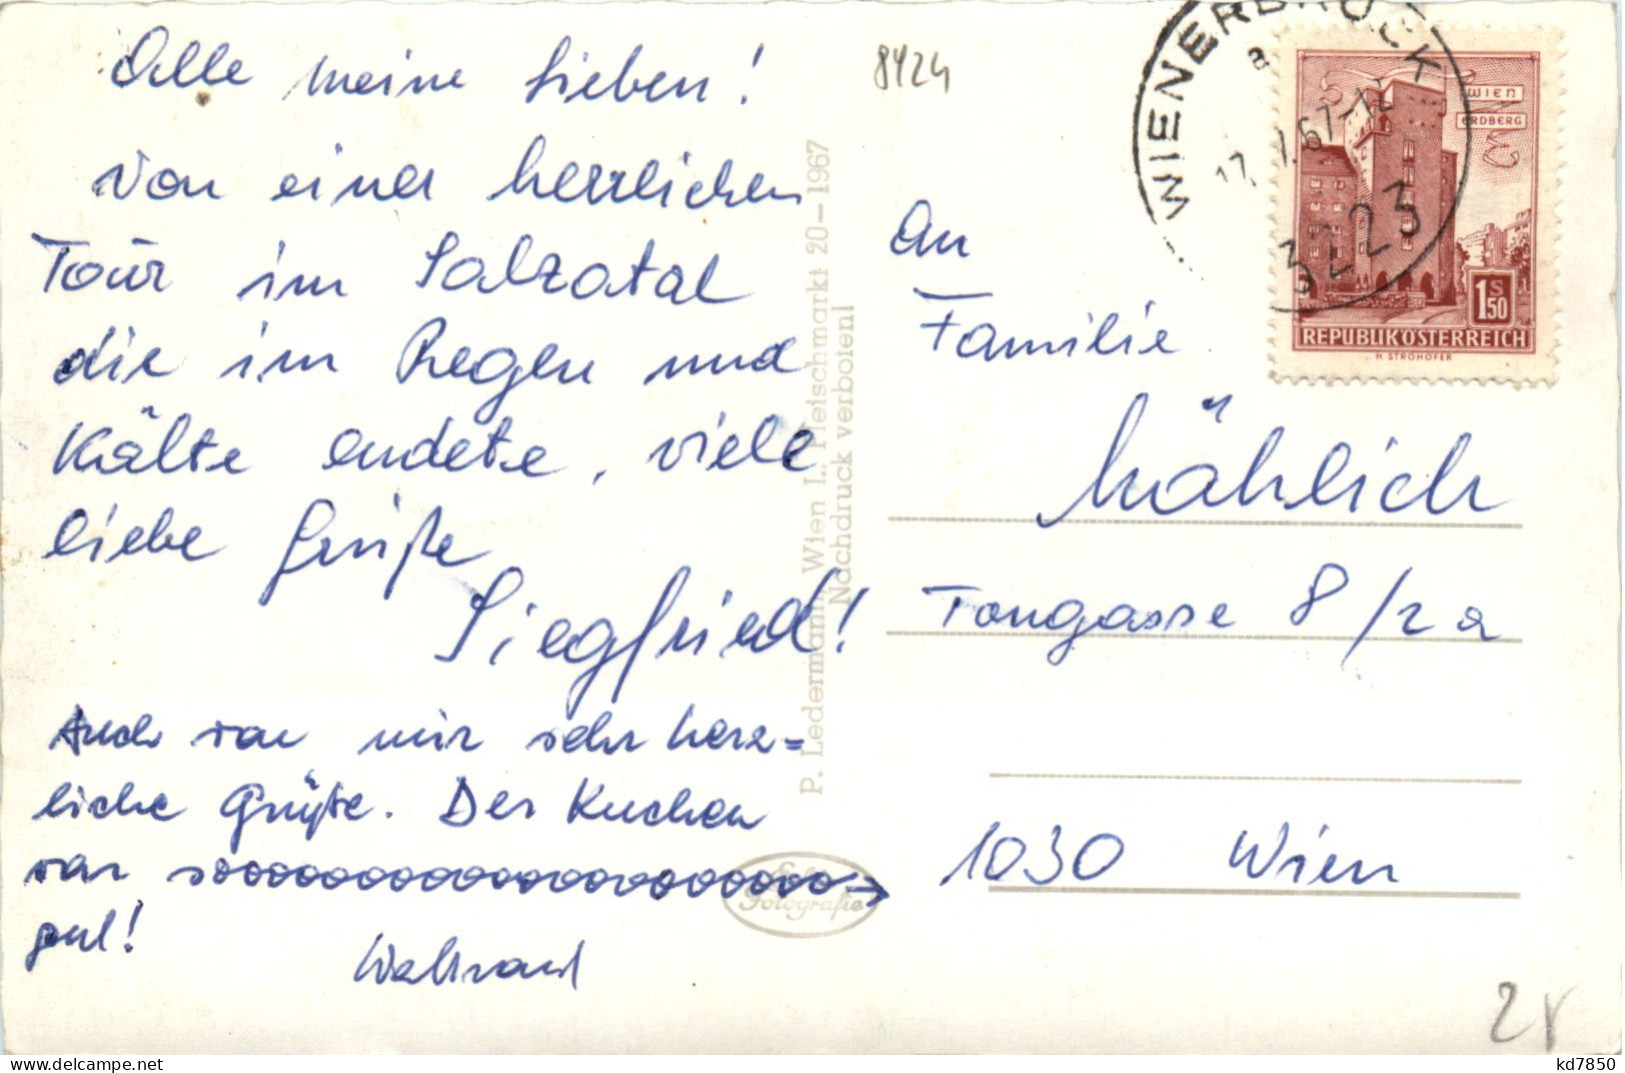 Alle meine Lieben!
Von einer herrlichen
Tour im Salzatal
die im Regen und
Kälte endete, viele
liebe Grüße
Siegfried!
Auch von mir sehr herz=
liche Grüße. Der Kuchen
war sooooooooooooooooooo→
gut!
Waltraud
8424
P. Ledermann, Wien I., Fleischmarkt 20–1967
Nachdruck verboten!
Fotografie
WIENERBRUCK
a
3223
WIEN
ERDBERG
1 S 50
REPUBLIK ÖSTERREICH
H. STROHOFER
An
Familie
Mählich
Tongasse 8/2a
1030 Wien
kd7850